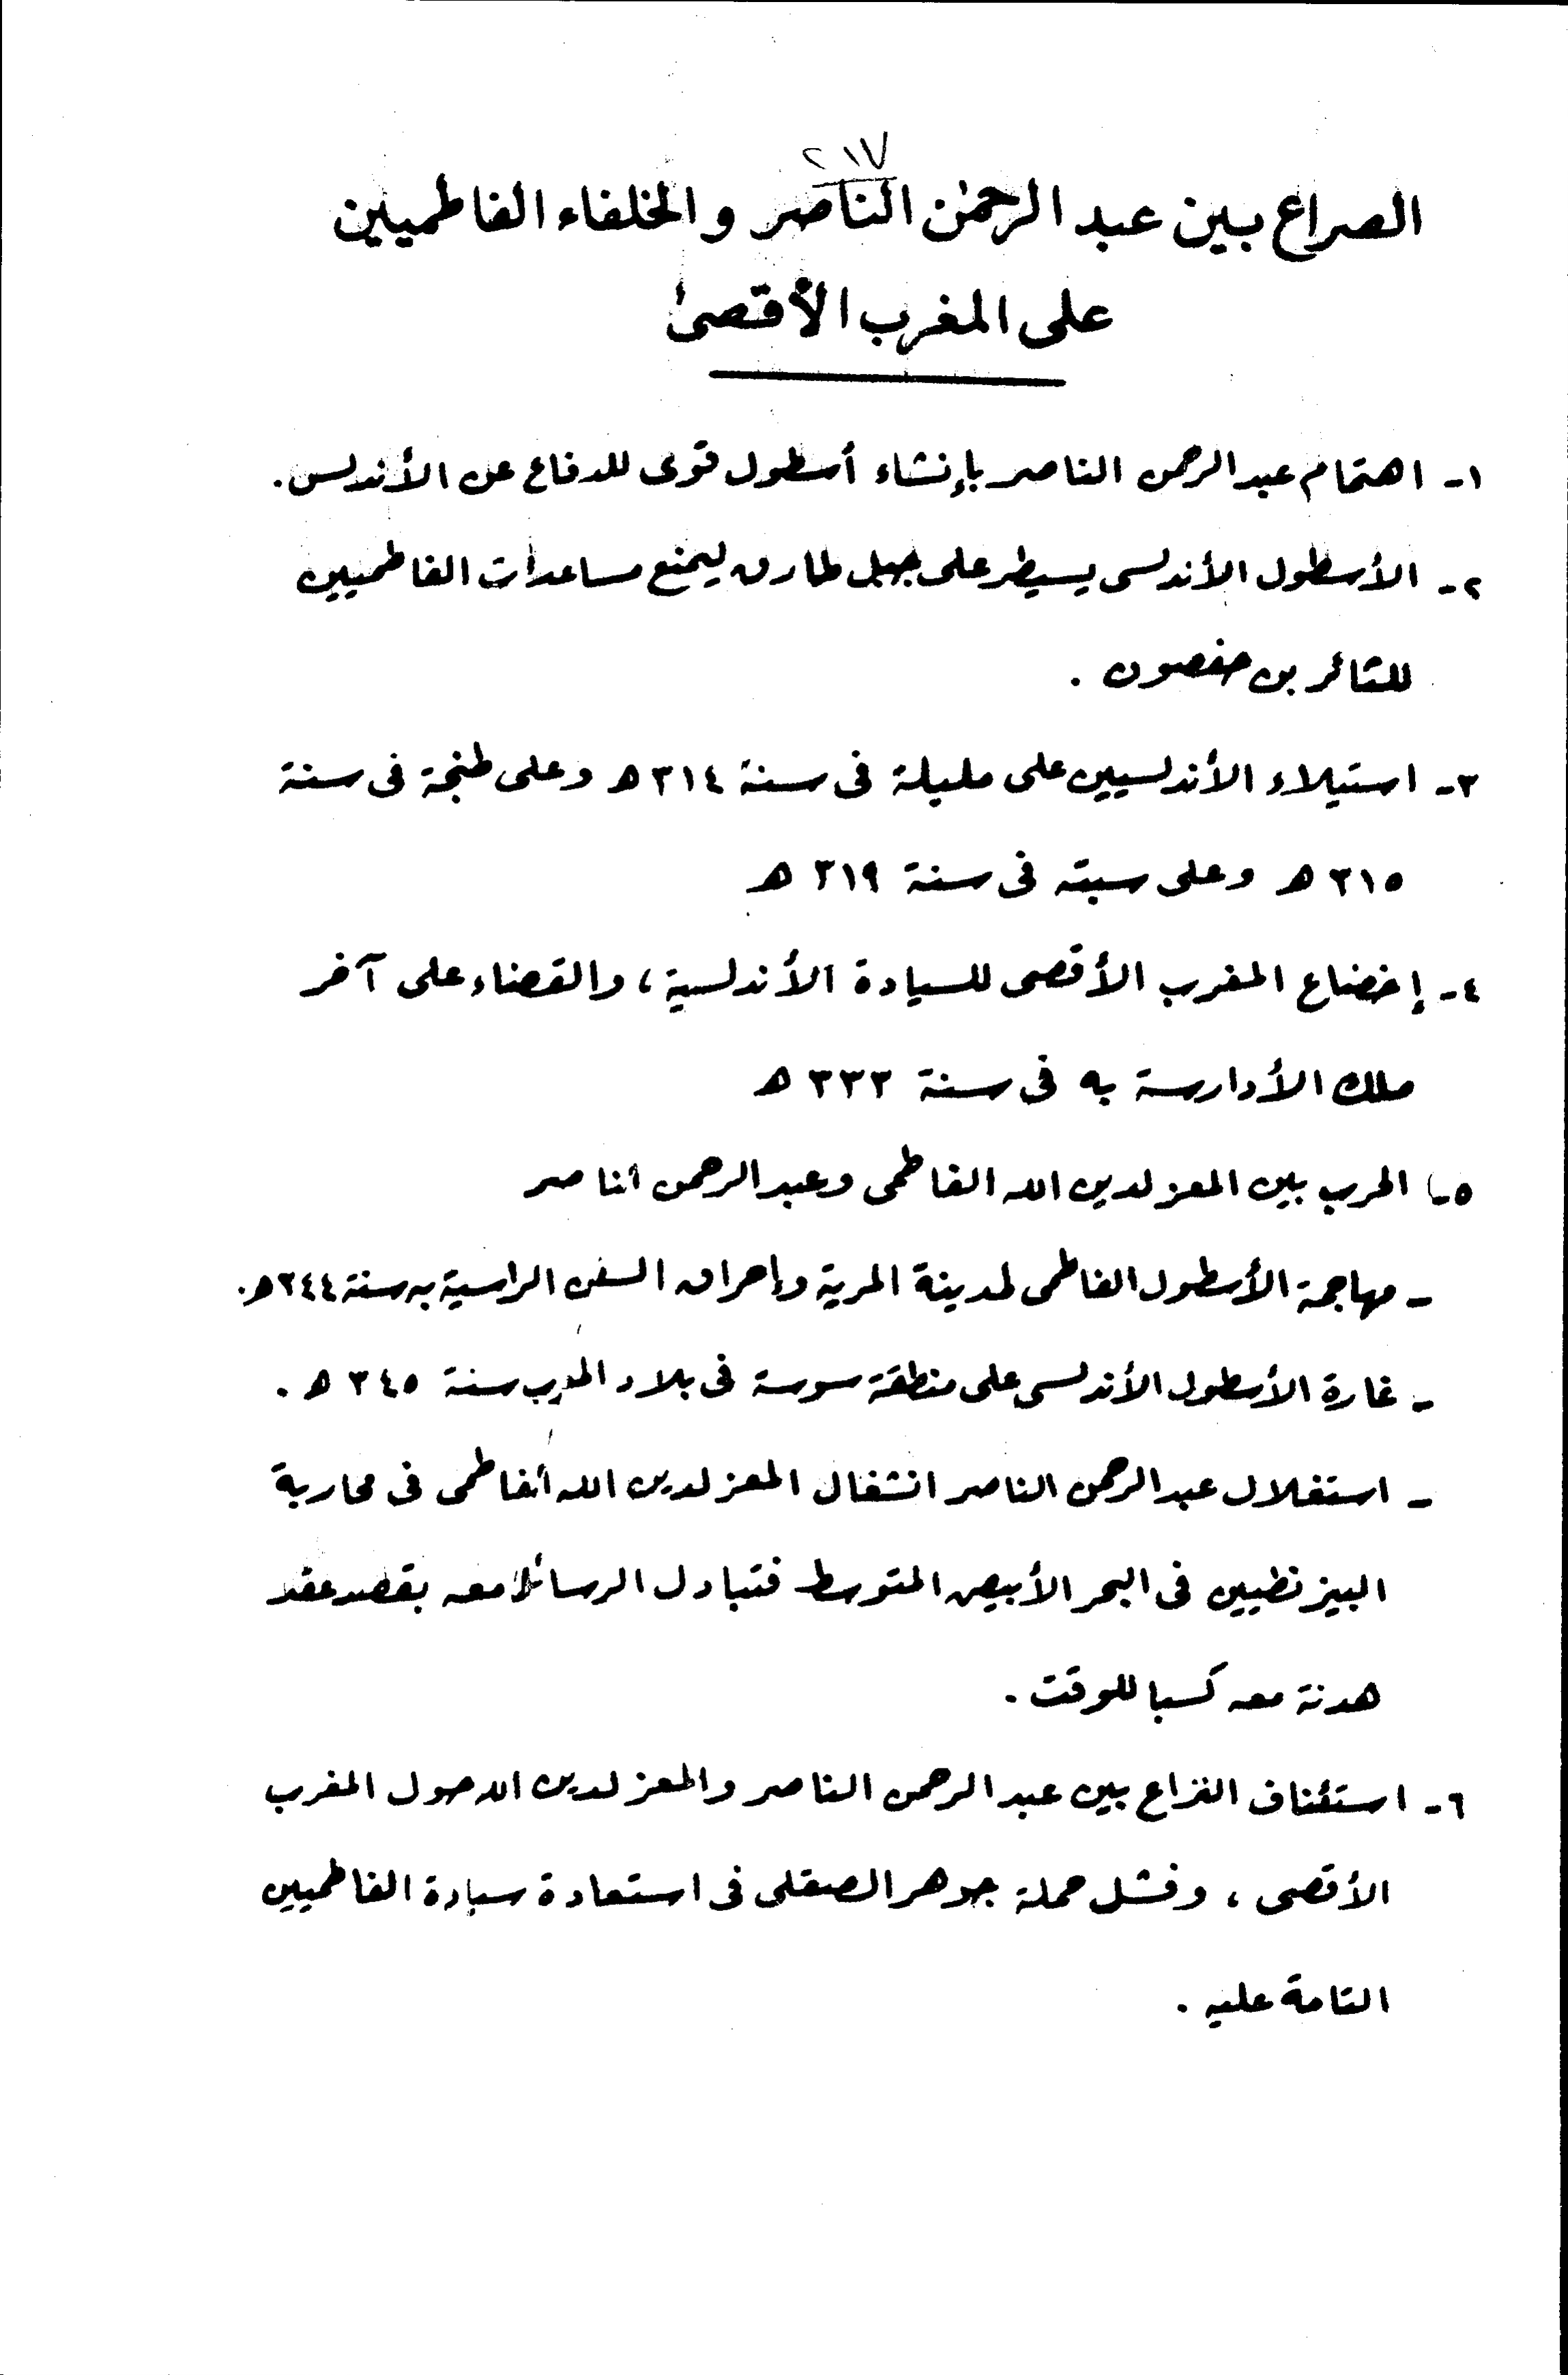 ٢١٧
الصراع بين عبد الرحمن الناصر والخلفاء الفاطميين
على المغرب الأقصى
١- اهتمام عبد الرحمن الناصر بإنشاء أسطول قوى للدفاع عن الأندلس.
٢- الأسطول الأندلسى يسيطر على جبل طارق ليمنع مساعدات الفاطميين
للثائر بن حفصون .
٣- استيلاء الأندلسيين على مليلة فى سنة ٣١٤ هـ وعلى طنجة فى سنة
٣١٥ هـ وعلى سبته فى سنة ٣١٩ هـ
٤- إخضاع المغرب الأقصى للسيادة الأندلسية ، والقضاء على آخر
ملك الأدارسة به فى سنة ٣٣٣ هـ
٥- الحرب بين المعز لدين الله الفاطمى وعبد الرحمن الناصر
- مهاجمة الأسطول الفاطمى لمدينة المرية وإحراق السفن الراسية به سنة ٣٤٤ هـ.
- غارة الأسطول الأندلسى على منطقة سوسة فى بلاد المغرب سنة ٣٤٥ هـ .
- استغلال عبد الرحمن الناصر انشغال المعز لدين الله الفاطمى فى محاربة
البيزنطيين فى البحر الأبيض المتوسط فتبادل الرسائل معه بقصد عقد
هدنة معه كسبا للوقت .
٦- استئناف النزاع بين عبد الرحمن الناصر والمعز لدين الله حول المغرب
الأقصى ، وفشل حملة جوهر الصقلى فى استعادة سيادة الفاطميين
التامة عليه .